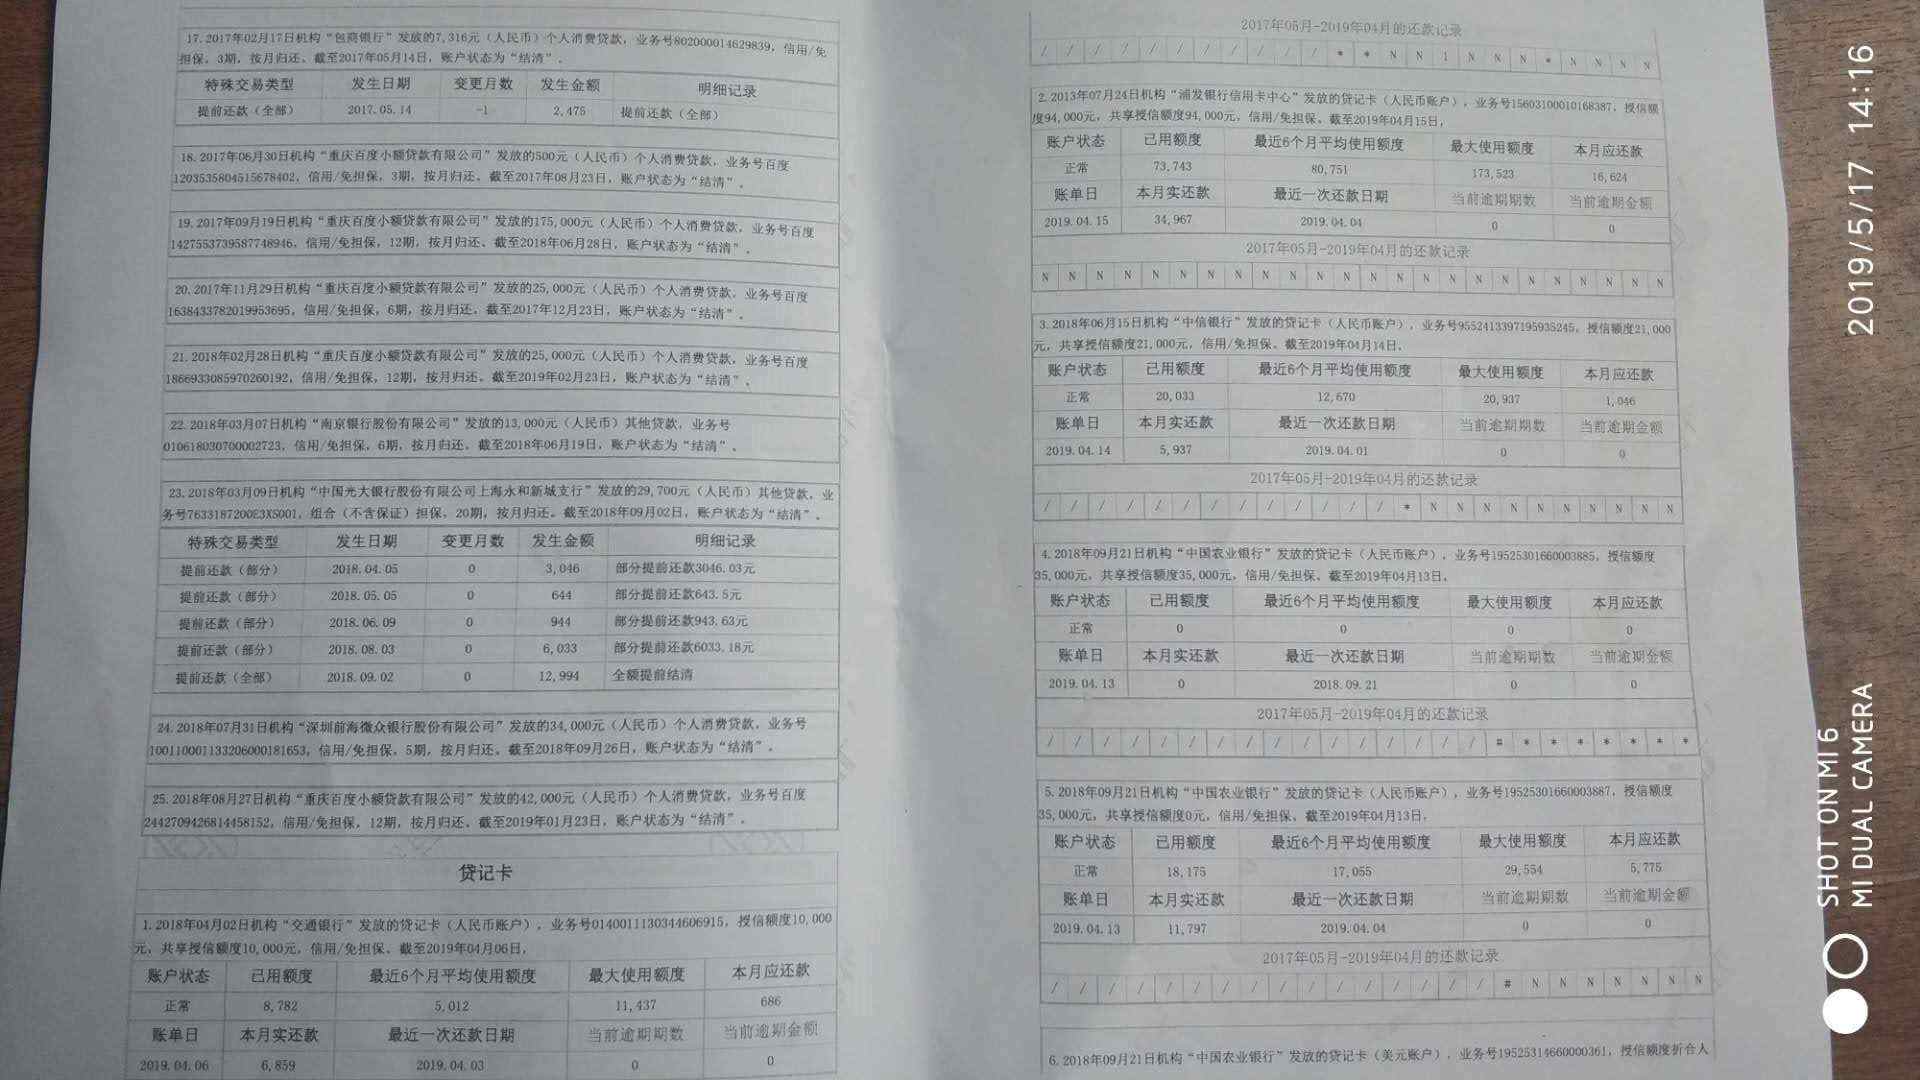 17. 2017年02月17日机构“包商银行”发放的7,316元（人民币）个人消费贷款，业务号802000014629839，信用/免
担保，3期，按月归还。截至2017年05月14日，账户状态为“结清”。
特殊交易类型 发生日期 变更月数 发生金额 明细记录
提前还款（全部） 2017.05.14 -1 2,475 提前还款（全部）
18. 2017年06月30日机构“重庆百度小额贷款有限公司”发放的500元（人民币）个人消费贷款，业务号百度
1203535804515678402，信用/免担保，3期，按月归还。截至2017年08月23日，账户状态为“结清”。
19. 2017年09月19日机构“重庆百度小额贷款有限公司”发放的175,000元（人民币）个人消费贷款，业务号百度
1427553739587748946，信用/免担保，12期，按月归还。截至2018年06月28日，账户状态为“结清”。
20. 2017年11月29日机构“重庆百度小额贷款有限公司”发放的25,000元（人民币）个人消费贷款，业务号百度
1638433782019953695，信用/免担保，6期，按月归还。截至2017年12月23日，账户状态为“结清”。
21. 2018年02月28日机构“重庆百度小额贷款有限公司”发放的25,000元（人民币）个人消费贷款，业务号百度
1866933085970260192，信用/免担保，12期，按月归还。截至2019年02月23日，账户状态为“结清”。
22. 2018年03月07日机构“南京银行股份有限公司”发放的13,000元（人民币）其他贷款，业务号
010618030700002723，信用/免担保，6期，按月归还。截至2018年06月19日，账户状态为“结清”。
23. 2018年03月09日机构“中国光大银行股份有限公司上海永和新城支行”发放的29,700元（人民币）其他贷款，业
务号7633187200E3XS001，组合（不含保证）担保，20期，按月归还。截至2018年09月02日，账户状态为“结清”。
特殊交易类型 发生日期 变更月数 发生金额 明细记录
提前还款（部分） 2018.04.05 0 3,046 部分提前还款3046.03元
提前还款（部分） 2018.05.05 0 644 部分提前还款643.5元
提前还款（部分） 2018.06.09 0 944 部分提前还款943.63元
提前还款（部分） 2018.08.03 0 6,033 部分提前还款6033.18元
提前还款（全部） 2018.09.02 0 12,994 全额提前结清
24. 2018年07月31日机构“深圳前海微众银行股份有限公司”发放的34,000元（人民币）个人消费贷款，业务号
10011000113320600018​1653，信用/免担保，5期，按月归还。截至2018年09月26日，账户状态为“结清”。
25. 2018年08月27日机构“重庆百度小额贷款有限公司”发放的42,000元（人民币）个人消费贷款，业务号百度
2442709426814458152，信用/免担保，12期，按月归还。截至2019年01月23日，账户状态为“结清”。
贷记卡
1. 2018年04月02日机构“交通银行”发放的贷记卡（人民币账户），业务号0140011130344606915，授信额度10,000
元，共享授信额度10,000元，信用/免担保。截至2019年04月06日，
账户状态 已用额度 最近6个月平均使用额度 最大使用额度 本月应还款
正常 8,782 5,012 11,437 686
账单日 本月实还款 最近一次还款日期 当前逾期期数 当前逾期金额
2019.04.06 6,859 2019.04.03 0 0
2017年05月-2019年04月的还款记录
/ / / / / / / / / / / * * N N 1 N N N * N N N N
2. 2013年07月24日机构“浦发银行信用卡中心”发放的贷记卡（人民币账户），业务号15603100010168387，授信额
度94,000元，共享授信额度94,000元，信用/免担保。截至2019年04月15日，
账户状态 已用额度 最近6个月平均使用额度 最大使用额度 本月应还款
正常 73,743 80,751 173,523 16,624
账单日 本月实还款 最近一次还款日期 当前逾期期数 当前逾期金额
2019.04.15 34,967 2019.04.04 0 0
2017年05月-2019年04月的还款记录
N N N N N N N N N N N N N N N N N N N N N N N N
3. 2018年06月15日机构“中信银行”发放的贷记卡（人民币账户），业务号9552413397195935245，授信额度21,000
元，共享授信额度21,000元，信用/免担保。截至2019年04月14日，
账户状态 已用额度 最近6个月平均使用额度 最大使用额度 本月应还款
正常 20,033 12,670 20,937 1,046
账单日 本月实还款 最近一次还款日期 当前逾期期数 当前逾期金额
2019.04.14 5,937 2019.04.01 0 0
2017年05月-2019年04月的还款记录
/ / / / / / / / / / / / / * N N N N N N N N N N
4. 2018年09月21日机构“中国农业银行”发放的贷记卡（人民币账户），业务号19525301660003885，授信额度
35,000元，共享授信额度35,000元，信用/免担保。截至2019年04月13日，
账户状态 已用额度 最近6个月平均使用额度 最大使用额度 本月应还款
正常 0 0 0 0
账单日 本月实还款 最近一次还款日期 当前逾期期数 当前逾期金额
2019.04.13 0 2018.09.21 0 0
2017年05月-2019年04月的还款记录
/ / / / / / / / / / / / / / / / # * * * * * * *
5. 2018年09月21日机构“中国农业银行”发放的贷记卡（人民币账户），业务号19525301660003887，授信额度
35,000元，共享授信额度0元，信用/免担保。截至2019年04月13日，
账户状态 已用额度 最近6个月平均使用额度 最大使用额度 本月应还款
正常 18,175 17,055 29,554 5,775
账单日 本月实还款 最近一次还款日期 当前逾期期数 当前逾期金额
2019.04.13 11,797 2019.04.04 0 0
2017年05月-2019年04月的还款记录
/ / / / / / / / / / / / / / / / # N N N N N N N
6. 2018年09月21日机构“中国农业银行”发放的贷记卡（美元账户），业务号19525314660000361，授信额度折合人
2019/5/17 14:16
SHOT ON MI 6
MI DUAL CAMERA